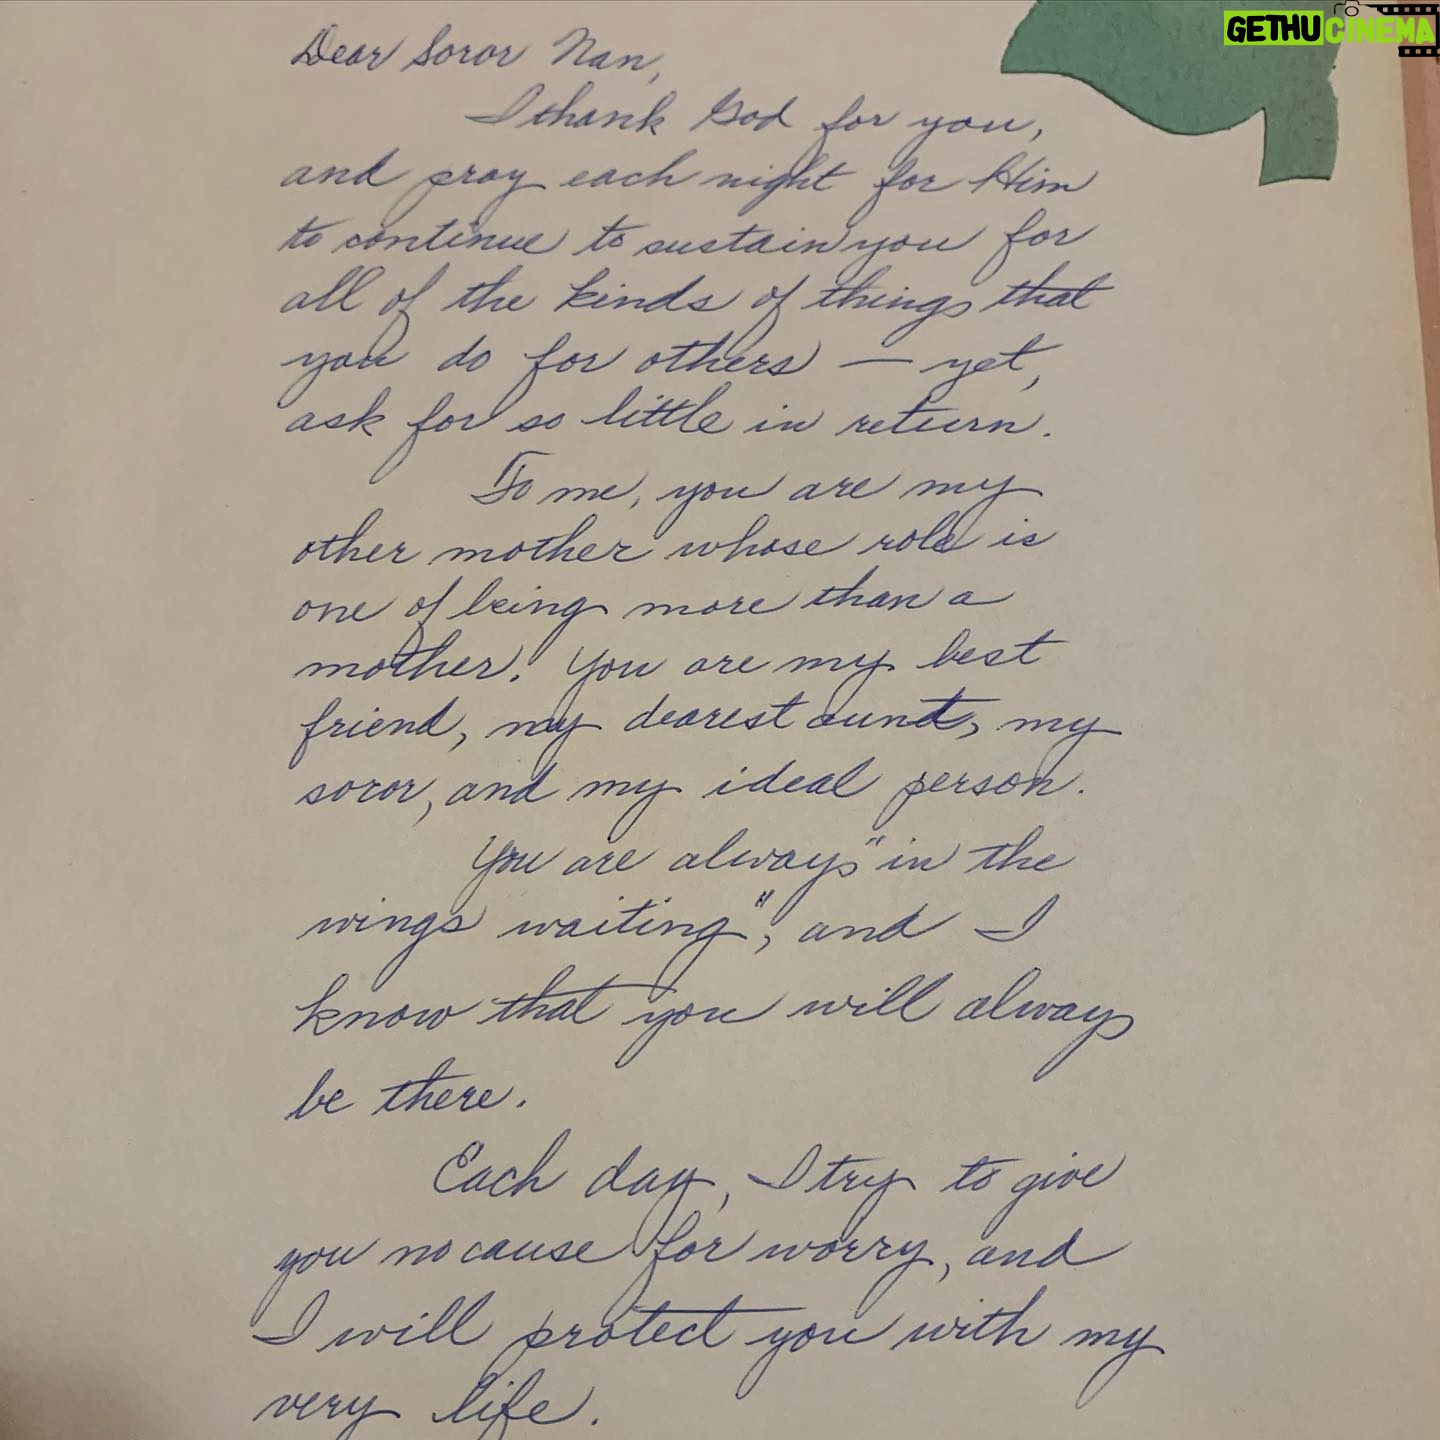 GETHUCINEMA
Dear Soror Nan,
I thank God for you,
and pray each night for Him
to continue to sustain you for
all of the kinds of things that
you do for others — yet,
ask for so little in return.
To me, you are my
other mother whose role is
one of being more than a
mother! You are my best
friend, my dearest aunt, my
soror, and my ideal person.
You are always "in the
wings waiting", and I
know that you will always
be there.
Each day, I try to give
you no cause for worry, and
I will protect you with my
very life.